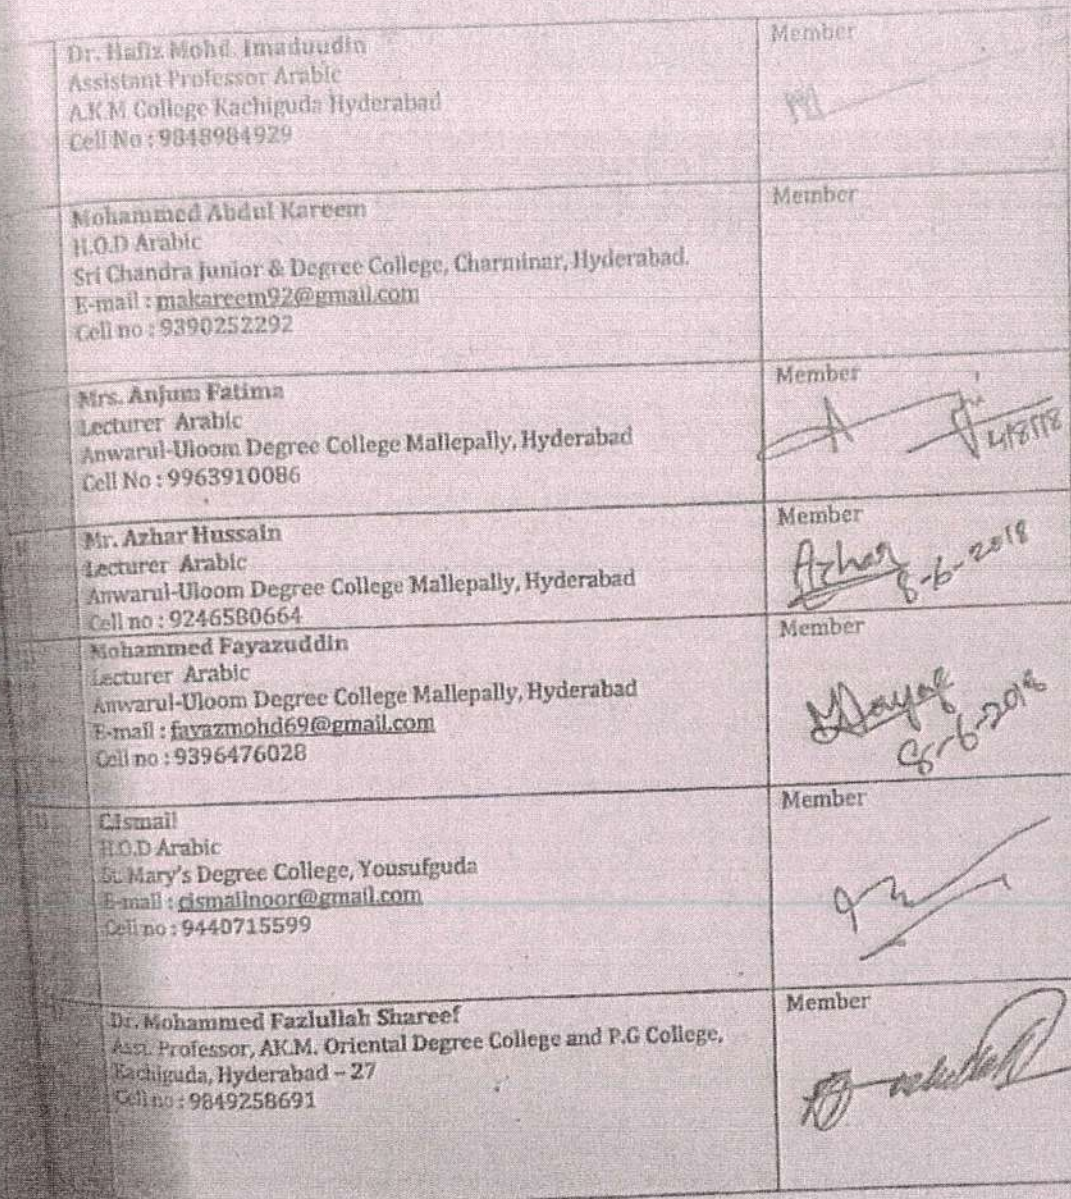 Dr. Hafiz Mohd. Imaduudin
Assistant Professor Arabic
A.K.M College Kachiguda Hyderabad
Cell No : 9848984929
Member
Mohammed Abdul Kareem
H.O.D Arabic
Sri Chandra Junior & Degree College, Charminar, Hyderabad.
E-mail : makareem92@gmail.com
Cell no : 9390252292
Member
Mrs. Anjum Fatima
Lecturer Arabic
Anwarul-Uloom Degree College Mallepally, Hyderabad
Cell No : 9963910086
Member
Mr. Azhar Hussain
Lecturer Arabic
Anwarul-Uloom Degree College Mallepally, Hyderabad
Cell no : 9246580664
Member
Azhar
8-6-2018
Mohammed Fayazuddin
Lecturer Arabic
Anwarul-Uloom Degree College Mallepally, Hyderabad
E-mail : fayazmohd69@gmail.com
Cell no : 9396476028
Member
8-6-2018
C.Ismail
H.O.D Arabic
St. Mary's Degree College, Yousufguda
E-mail : cismailnoor@gmail.com
Cell no : 9440715599
Member
Dr. Mohammed Fazlullah Shareef
Asst. Professor, AK.M. Oriental Degree College and P.G College,
Kachiguda, Hyderabad – 27
Cell no : 9849258691
Member